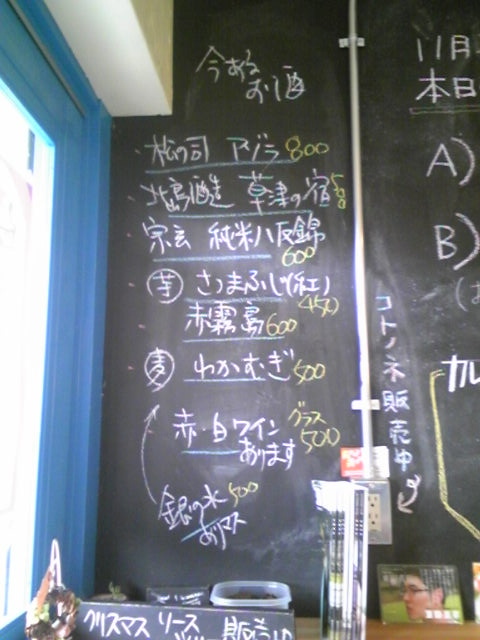 今ある
お酒
・松の司 アゾラ 800
・北島酒造 草津の宿 500
宗玄 純米八反錦
600
・芋 さつまふじ(紅)
450
赤霧島 600
・麦 わかむぎ 500
赤・白ワイン グラス
あります 500
銀の水 500
あります
クリスマス リース
コトノネ販売中
11月
本日
A)
B)